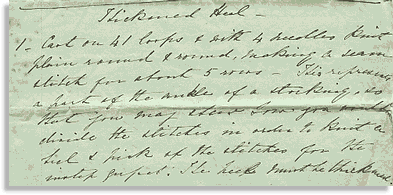 Thickened Heel -
1 - Cast on 41 loops & with 4 needles knit
plain round & round, making a seam
stitch for about 5 rows - This represents
a part of the ankle of a stocking, so
that you may shew how you would
divide the stitches in order to knit a
heel & pick up the stitches for the
instep gusset; The heels must be thickened